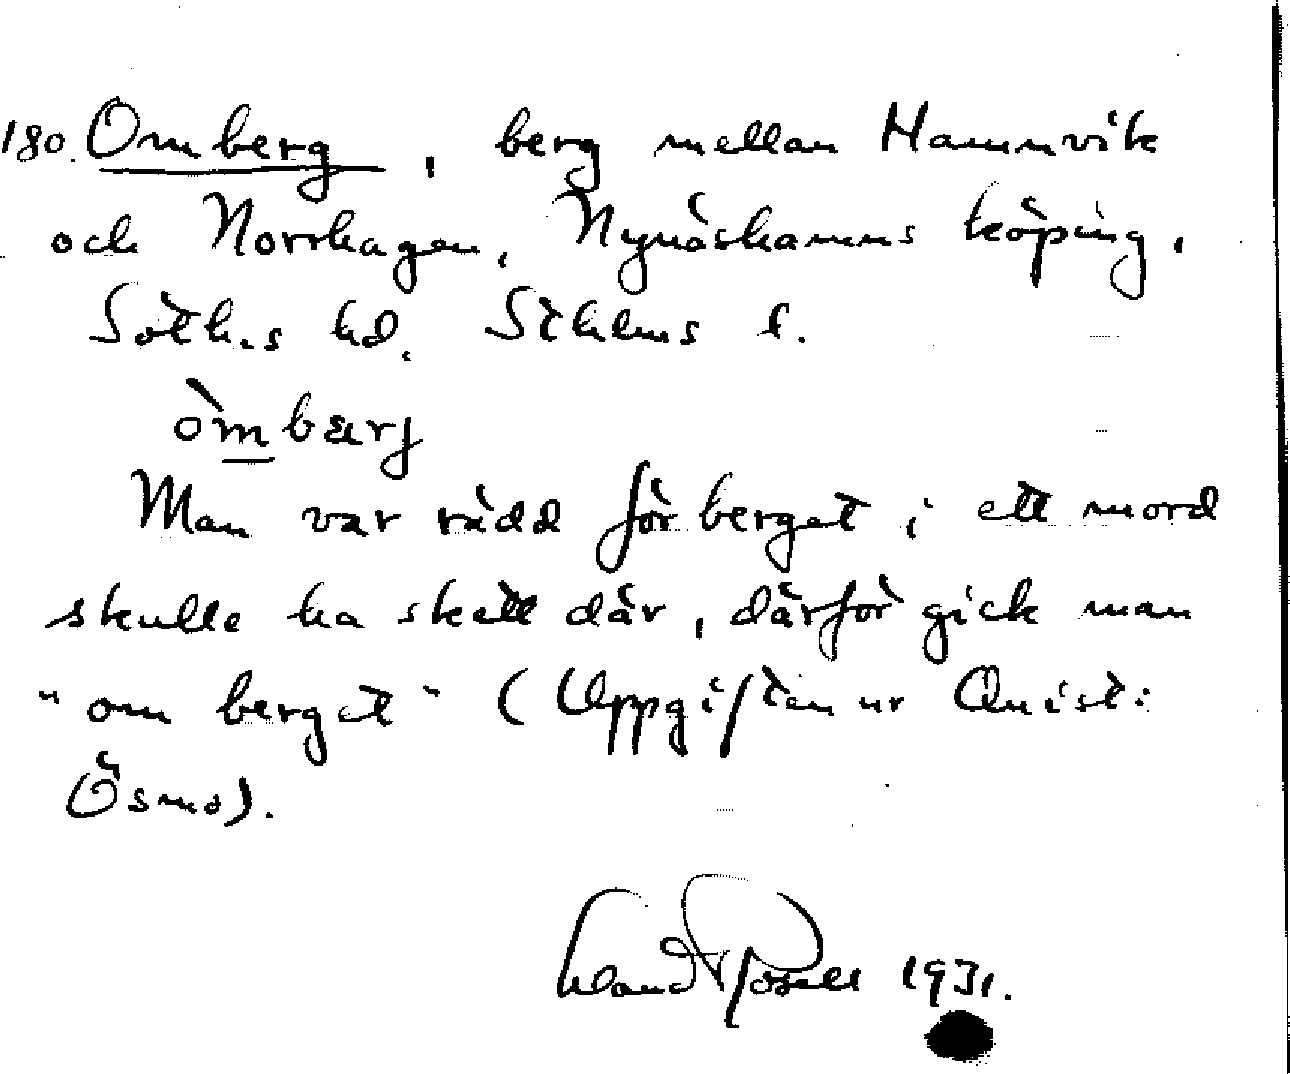 180. Omberg, berg mellan Hamnvik
och Norrhagen, Nynäshamns köping,
Soth.s hd. Sthlms l.
òmbærj
Man var rädd för berget; ett mord
skulle ha skett där, därför gick man
"om berget" (Uppgiften ur Quist:
Ösmo).
1931.